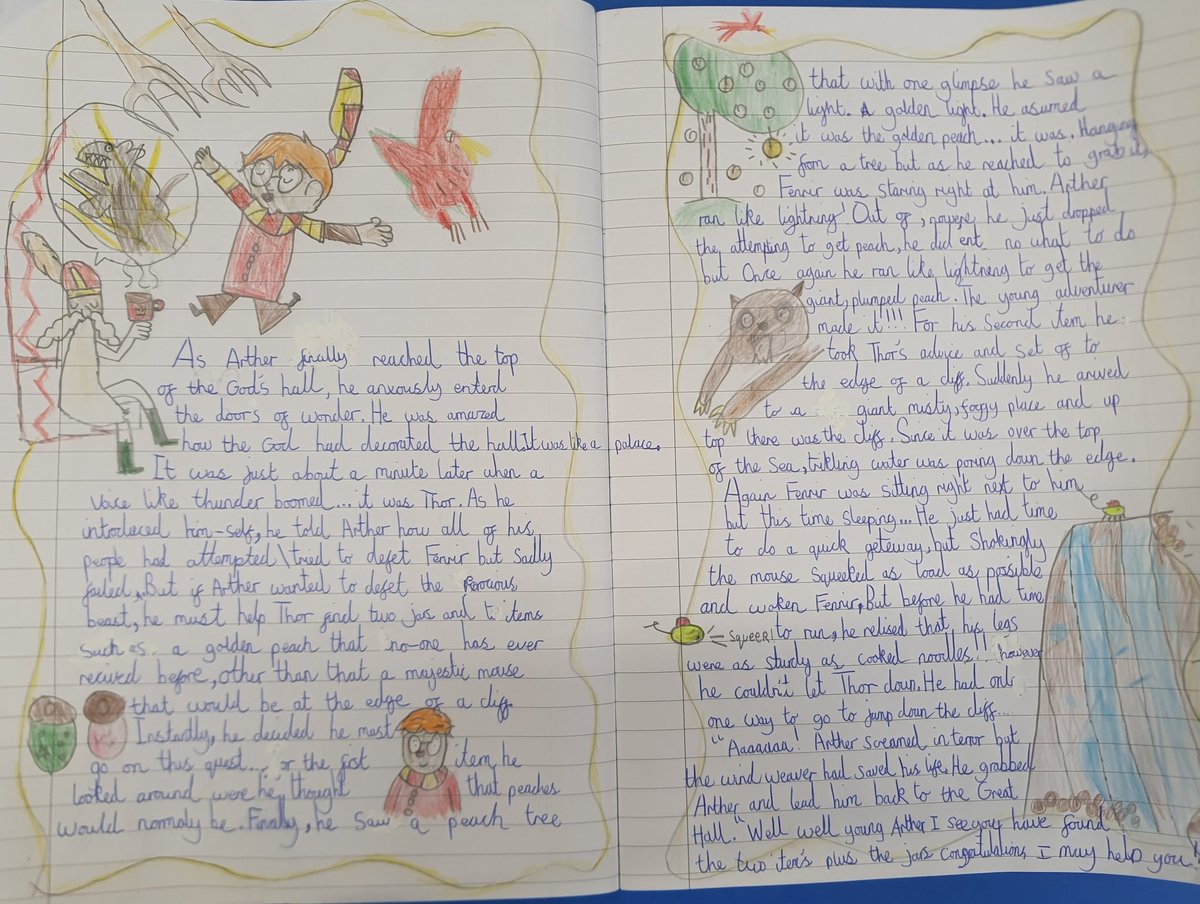 As Arther finally reached the top
of the God's hall, he anxously enterd
the doors of wonder. He was amazed
how the God had decorated the hall. It was like a palace.
It was just about a minute later when a
voice like thunder boomed... it was Thor. As he
introduced him-self, he told Arther how all of his
people had attempted\tried to defet Fenrir but sadly
failed, But if Arther wanted to defet the ferocious
beast, he must help Thor find two jas and items
such as a golden peach that no-one has ever
recived before, other than that a majestic mouse
that would be at the edge of a cliff
Instantly, he decided he must
go on this quest... for the first item he
looked around were he thought that peaches
would normaly be. Finaly, he saw a peach tree
that with one glimpse he saw a
light. A golden light. He asumed
it was the golden peach... it was. Hanging
from a tree but as he reached to grab it,
Fenrir was staring right at him. Arther
ran like lightning! Out of nowere he just dropped
the attempting to get peach, he did ent no what to do
but Once again he ran like lightning to get the
giant, plumped peach. The young adventurer
made it!!! For his second item he
took Thor's advice and set of to
the edge of a cliff. Suddenly he arived
to a giant misty, foggy place and up
top there was the cliff. Since it was over the top
of the Sea, trikling water was poring down the edge.
Again Fenrir was sitting right next to him
but this time sleeping... He just had time
to do a quick geteway, but Shokingly
the mouse squeeked as load as possible
and woken Fenrir, But before he had time
SQUEEK!
to run, he relised that his legs
were as sturdy as cooked noodles!! however
he couldn't let Thor down. He had only
one way to go to jump down the cliff...
"Aaaaaaa! Arther screamed in terror but
the wind weaver had saved his life. He grabbed
Arther and lead him back to the Great
Hall. "Well well young Arther I see you have found
the two item's plus the jars congratulations I may help you!